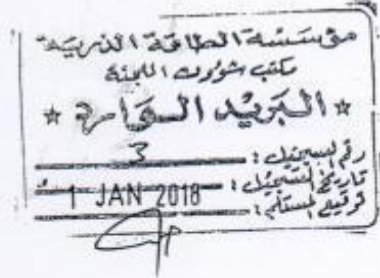 مؤسسة الطاقة الذرية
مكتب شؤون اللجنة
* البريد الوارد *
رقم التسجيل : 3
تاريخ التسجيل : 1 JAN 2018
توقيع المستلم :